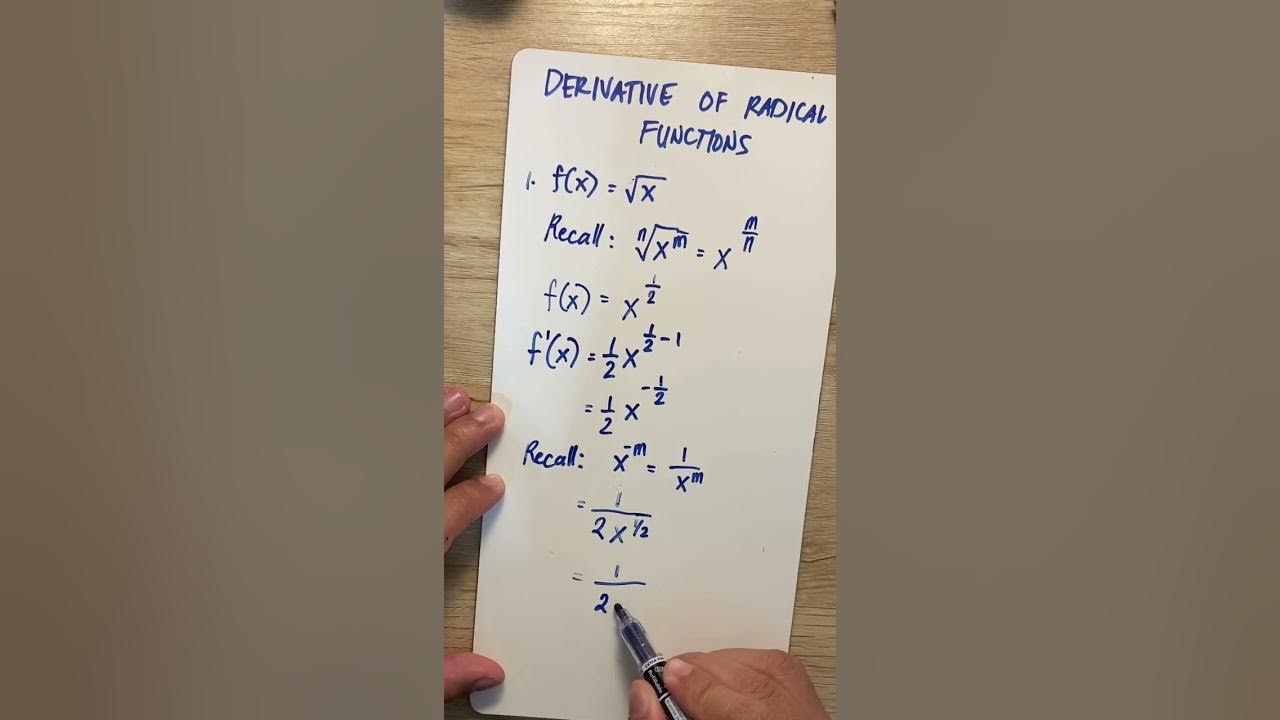 DERIVATIVE OF RADICAL
FUNCTIONS
1. f(x) = √x
Recall: ⁿ√x^m = x^(m/n)
f(x) = x^(1/2)
f'(x) = 1/2 x^(1/2 - 1)
= 1/2 x^(-1/2)
Recall: x^(-m) = 1/x^m
= 1/(2x^(1/2))
= 1/2